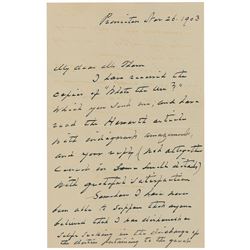 Princeton Nov 26. 1903
My dear Mr Thorn
I have received the
copies of "
which you sent me, and have
read the Harvard article
with indignant amazement,
and your reply (not altogether
correct in some small details)
with grateful satisfaction
Somehow I have never
been able to suppose that anyone
believed that I was
self seeking in the discharge of
the duties pertaining to the great